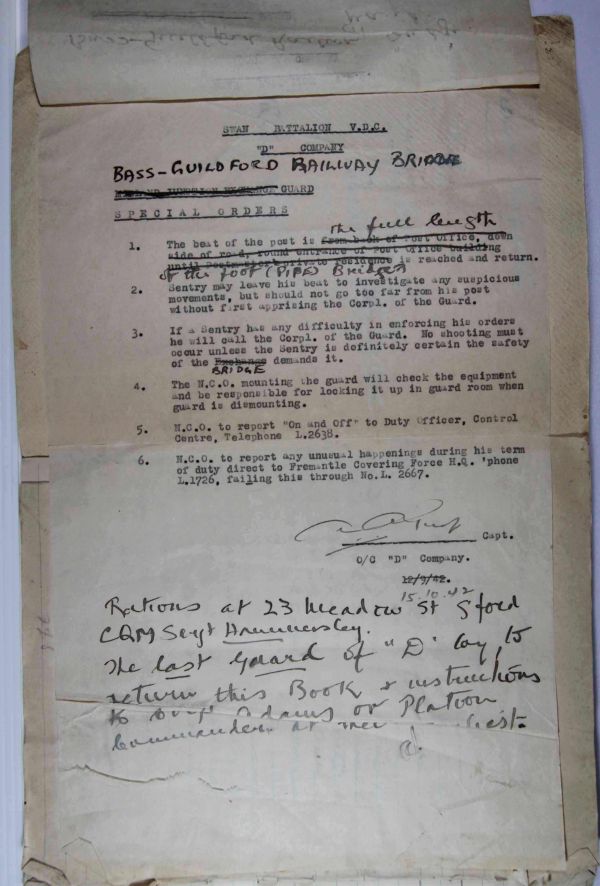 SWAN BATTALION V.D.C.
"D" COMPANY
BASS-GUILDFORD RAILWAY BRIDGE
MIDLAND JUNCTION EXCHANGE GUARD
SPECIAL ORDERS
the full length
1. The beat of the post is from back of Post Office, down
side of road, round entrance of Post Office building
until Postmaster's private residence is reached and return.
of the foot (PIPE) Bridges
2. Sentry may leave his beat to investigate any suspicious
movements, but should not go too far from his post
without first apprising the Corpl. of the Guard.
3. If a Sentry has any difficulty in enforcing his orders
he will call the Corpl. of the Guard. No shooting must
occur unless the Sentry is definitely certain the safety
of the Exchange demands it.
BRIDGE
4. The N.C.O. mounting the guard will check the equipment
and be responsible for locking it up in guard room when
guard is dismounting.
5. N.C.O. to report "On and Off" to Duty Officer, Control
Centre, Telephone L.2638.
6. N.C.O. to report any unusual happenings during his term
of duty direct to Fremantle Covering Force H.Q. 'phone
L.1726, failing this through No.L. 2667.
Capt.
O/C "D" Company.
12/9/42.
15.10.42
Rations at 23 Meadow St Gford
CQM Sergt Hammersley.
The last Guard of "D" Coy, to
return this Book & instructions
to Adams or Platoon
Commander at